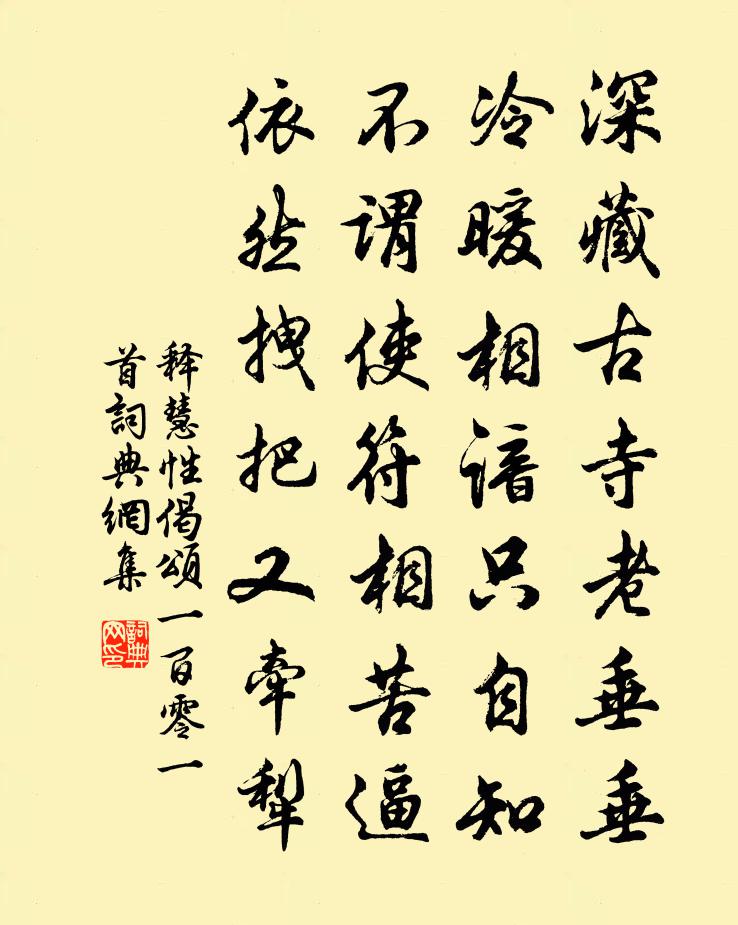 深藏古寺老垂垂
冷暖相諳只自知
不謂使符相苦逼
依然拽把又牽犁
释慧性偈頌一百零一
首詞典網集
詞典
网印